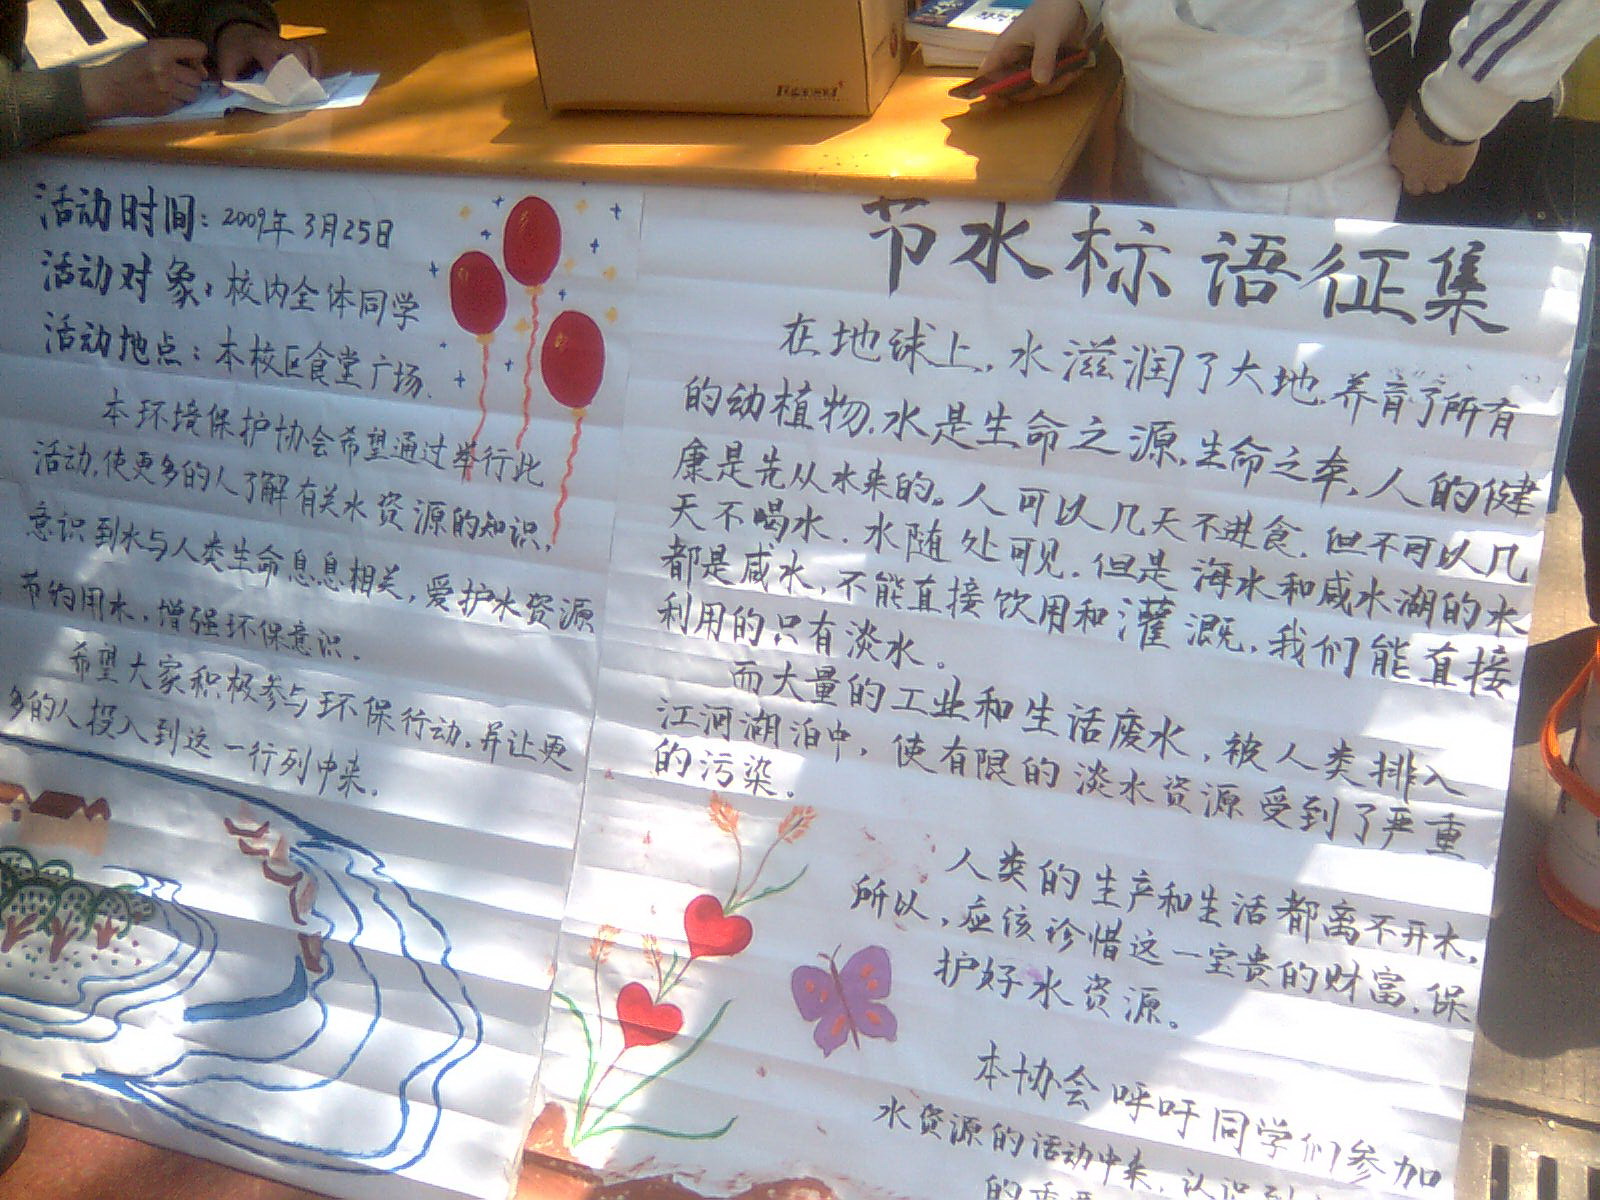 活动时间：2009年3月25日
活动对象：校内全体同学
活动地点：本校区食堂广场.
本环境保护协会希望通过举行此
活动,使更多的人了解有关水资源的知识,
意识到水与人类生命息息相关,爱护水资源
节约用水,增强环保意识.
希望大家积极参与环保行动,并让更
多的人投入到这一行列中来.
节水标语征集
在地球上,水滋润了大地.养育了所有
的动植物.水是生命之源,生命之本,人的健
康是先从水来的。人可以几天不进食.但不可以几
天不喝水.水随处可见.但是海水和咸水湖的水
都是咸水,不能直接饮用和灌溉,我们能直接
利用的只有淡水。
而大量的工业和生活废水,被人类排入
江河湖泊中,使有限的淡水资源受到了严重
的污染.
人类的生产和生活都离不开水,
所以,应该珍惜这一宝贵的财富,保
护好水资源。
本协会呼吁同学们参加
水资源的活动中来,认识到